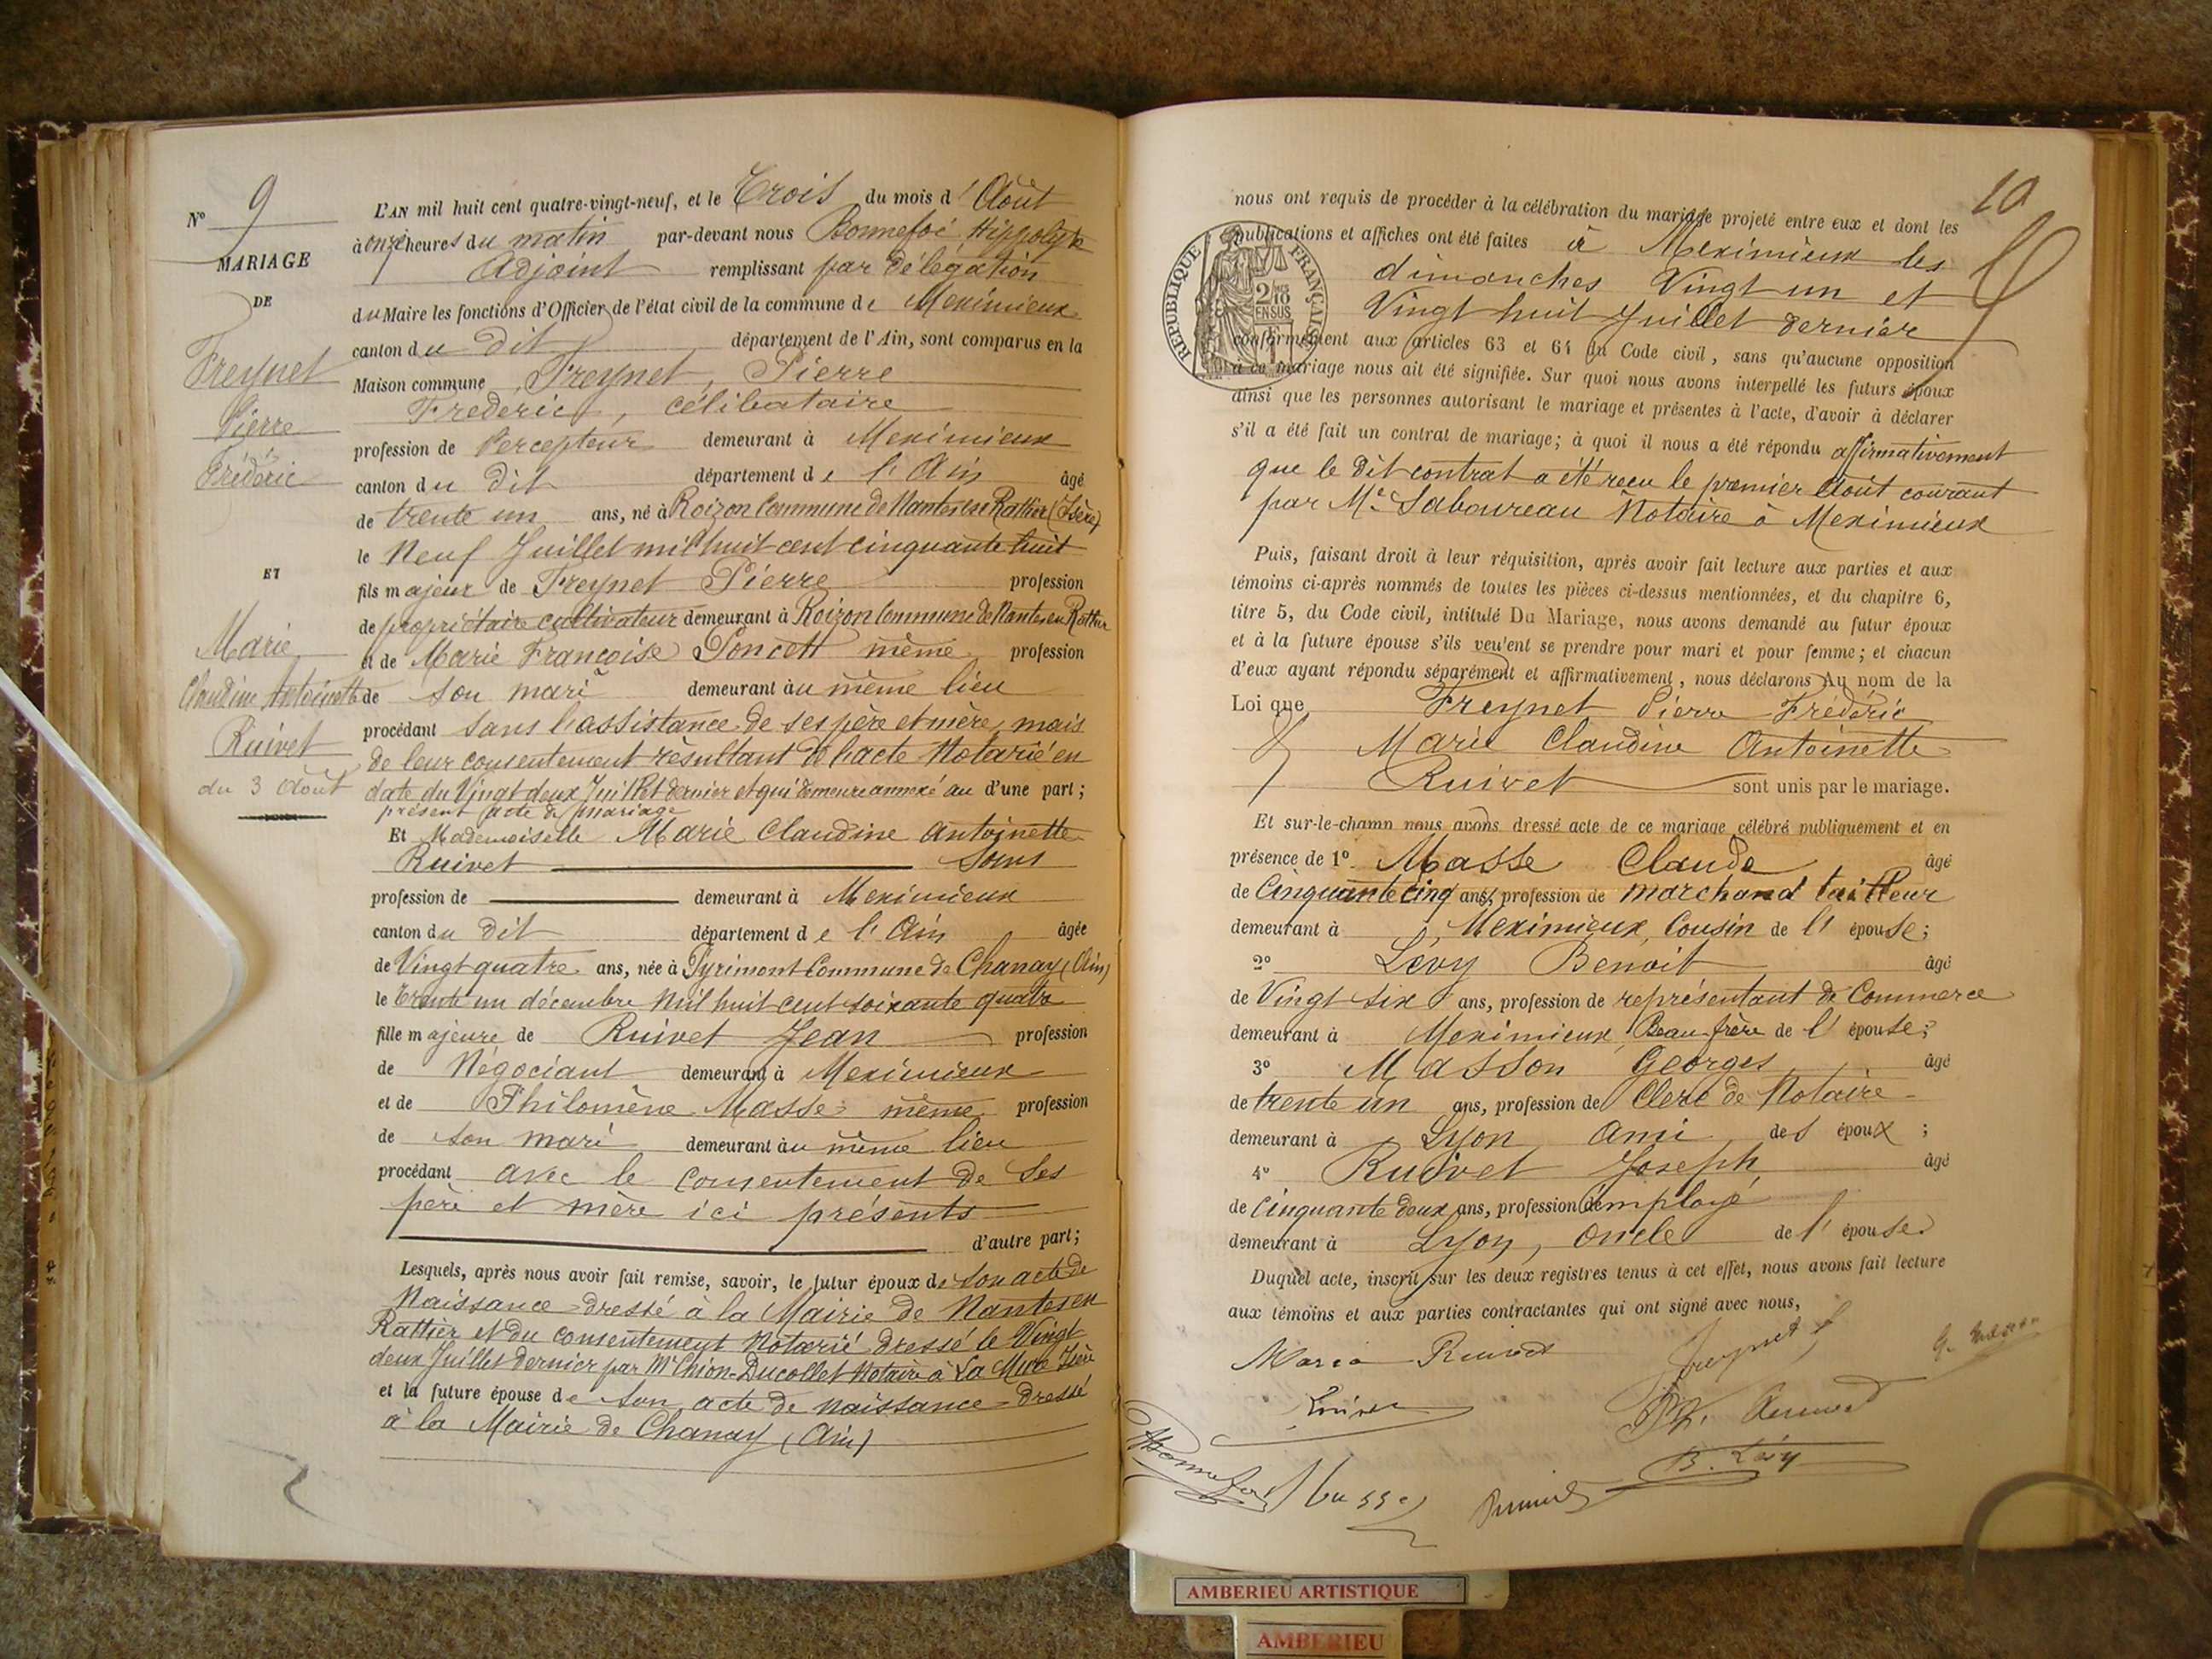 N° 9
MARIAGE
DE
Freynet
Pierre
Frédéric
ET
Marie
Claudine Antoinette
Ruivet
du 3 Août
L'AN mil huit cent quatre-vingt-neuf, et le Trois du mois d'Août
à onze heures du matin par-devant nous Bonnefoi Hippolyte
Adjoint remplissant par délégation
du Maire les fonctions d'Officier de l'état civil de la commune de Meximieux
canton du dit département de l'Ain, sont comparus en la
Maison commune Freynet, Pierre
Frédéric, célibataire
profession de Percepteur demeurant à Meximieux
canton du dit département de l'Ain âgé
de trente un ans, né à Roizon Commune de Nantes en Rattier (Isère)
le Neuf Juillet mil huit cent cinquante huit
fils majeur de Freynet Pierre profession
de propriétaire cultivateur demeurant à Roizon Commune de Nantes en Rattier
et de Marie Françoise Poncett même profession
de son mari demeurant au même lieu
procédant sans l'assistance de ses père et mère, mais
de leur consentement résultant de l'acte Notarié en
date du Vingt deux Juillet dernier et qui demeure annexé au d'une part;
présent acte de mariage
Et Mademoiselle Marie Claudine Antoinette
Ruivet Sans
profession de demeurant à Meximieux
canton du dit département de l'Ain âgée
de Vingt quatre ans, née à Pyrimont Commune de Chanay (Ain)
le trente un décembre mil huit cent soixante quatre
fille majeure de Ruivet Jean profession
de Négociant demeurant à Meximieux
et de Philomène Masse même profession
de son mari demeurant au même lieu
procédant avec le consentement de ses
père et mère ici présents
d'autre part;
Lesquels, après nous avoir fait remise, savoir, le futur époux de son acte de
Naissance dressé à la Mairie de Nantes en
Rattier et du consentement Notarié dressé le Vingt
deux Juillet dernier par Me Chion-Ducollet Notaire à La Mure Isère
et la future épouse de son acte de naissance dressé
à la Mairie de Chanay (Ain)
10
nous ont requis de procéder à la célébration du mariage projeté entre eux et dont les
publications et affiches ont été faites à Meximieux les
dimanches Vingt un et
Vingt huit Juillet dernier
REPUBLIQUE FRANÇAISE
2/10
EN SUS
conformément aux articles 63 et 64 du Code civil, sans qu'aucune opposition
à ce mariage nous ait été signifiée. Sur quoi nous avons interpellé les futurs époux
ainsi que les personnes autorisant le mariage et présentes à l'acte, d'avoir à déclarer
s'il a été fait un contrat de mariage; à quoi il nous a été répondu affirmativement
que le dit contrat a été reçu le premier Août courant
par Me Saboureau Notaire à Meximieux
Puis, faisant droit à leur réquisition, après avoir fait lecture aux parties et aux
témoins ci-après nommés de toutes les pièces ci-dessus mentionnées, et du chapitre 6,
titre 5, du Code civil, intitulé Du Mariage, nous avons demandé au futur époux
et à la future épouse s'ils veulent se prendre pour mari et pour femme; et chacun
d'eux ayant répondu séparément et affirmativement, nous déclarons Au nom de la
Loi que Freynet Pierre Frédéric
& Marie Claudine Antoinette
Ruivet sont unis par le mariage.
Et sur-le-champ nous avons dressé acte de ce mariage célébré publiquement et en
présence de 1° Masse Claude âgé
de Cinquante cinq ans, profession de marchand tailleur
demeurant à Meximieux, Cousin de l'épouse;
2° Levy Benoit âgé
de Vingt six ans, profession de représentant de Commerce
demeurant à Meximieux Beau-frère de l'épouse;
3° Masson Georges âgé
de trente un ans, profession de Clerc de Notaire
demeurant à Lyon Ami des époux;
4° Ruivet Joseph âgé
de Cinquante deux ans, profession d'employé
demeurant à Lyon, Oncle de l'épouse.
Duquel acte, inscrit sur les deux registres tenus à cet effet, nous avons fait lecture
aux témoins et aux parties contractantes qui ont signé avec nous,
Maria Ruivet
Freynet f
G. Masson
Ruivet
B. Lévy
Bonnefoi
Masse
Ruivet
AMBERIEU ARTISTIQUE
AMBERIEU